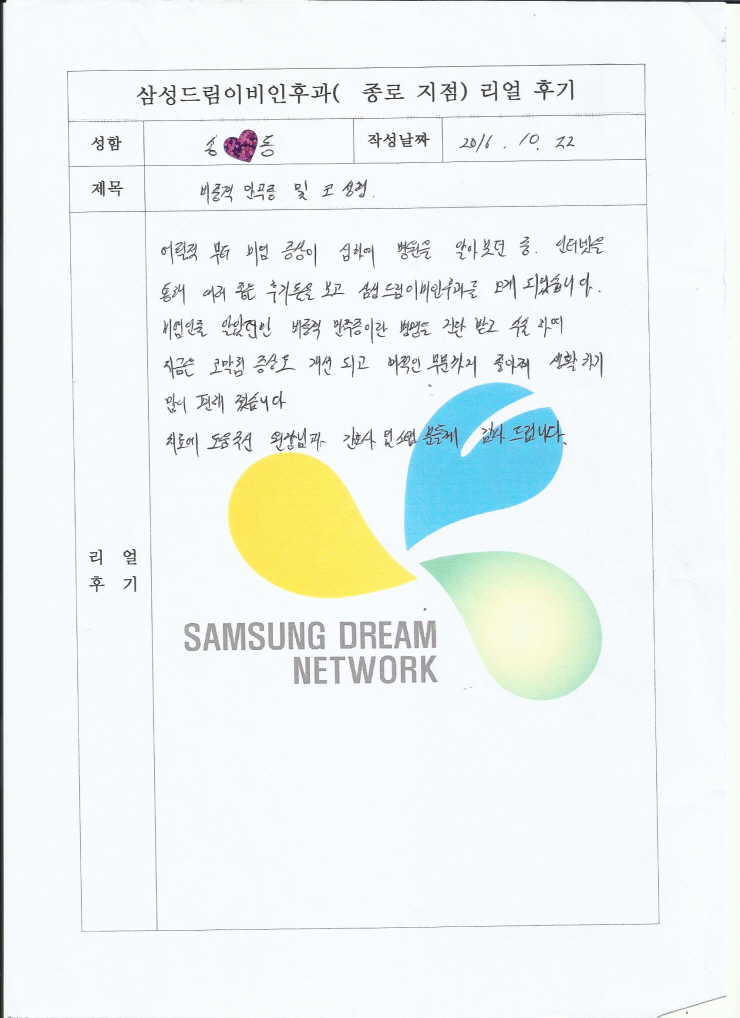 삼성드림이비인후과( 종로 지점) 리얼 후기
성함 송 동 작성날짜 2016. 10. 22
제목 비중격 만곡증 및 코 성형.
어릴적 부터 비염 증상이 심하여 병원을 알아보던 중. 인터넷을
통해 여러 좋은 후기들을 보고 삼성드림이비인후과를 오게 되었습니다.
비염인줄 알았던 비중격 만곡증이란 병명을 진단 받고 수술 하여
지금은 코막힘 증상도 개선 되고 미적인 부분까지 좋아져 생활 하기
많이 편해 졌습니다
치료에 도움주신 원장님과 간호사 분들께 감사 드립니다.
리 얼
후 기
SAMSUNG DREAM
NETWORK